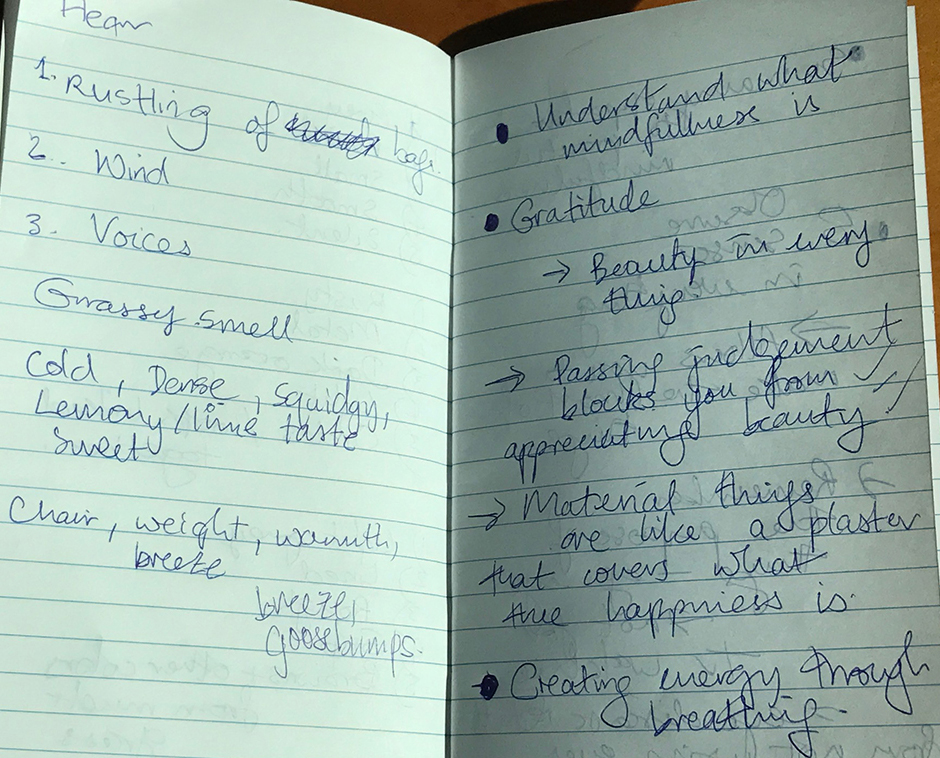 Hear
1. Rustling of bag.
2. Wind
3. Voices
Grassy smell
Cold, Dense, Squidgy,
Lemony/lime taste
Sweet
Chair, weight, warmth,
breeze
breeze,
goosebumps.
• Understand what
mindfullness is
• Gratitude
→ Beauty in every
thing
→ Passing judgement
blocks you from
appreciating beauty
→ Material things
are like a plaster
that covers what
true happiness is.
• Creating energy through
breathing.